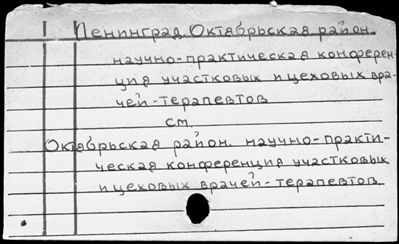 Ленинград. Октябрьская район.
научно-практическая конферен-
ция участковых и цеховых вра-
чей-терапевтов
см.
Октябрьская район. научно-практи-
ческая конференция участковых
и цеховых врачей-терапевтов.